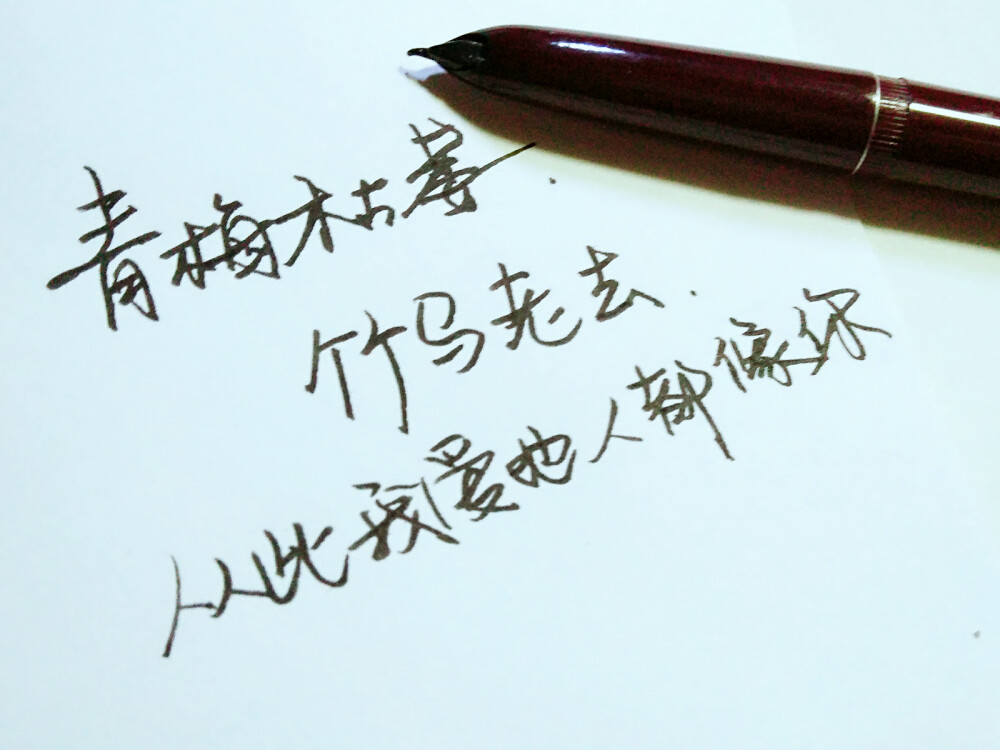 青梅枯萎.
竹马老去.
从此我爱他人都像你